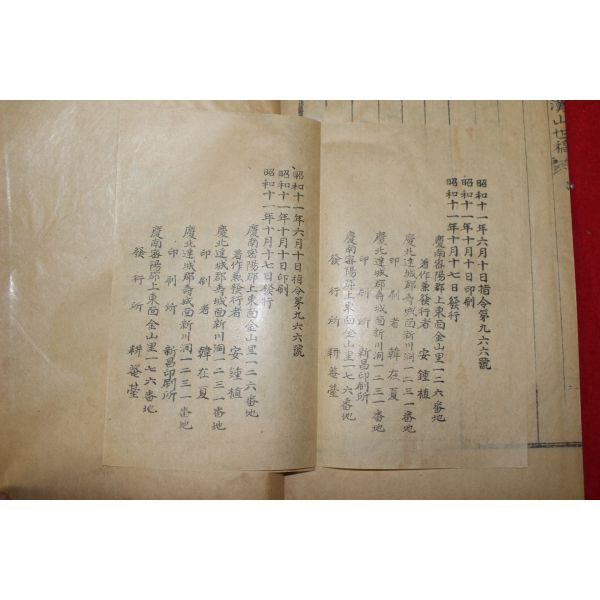 昭和十一年六月十日指令第九六六號
昭和十一年十月十日印刷
昭和十一年十月十七日發行
慶南密陽郡上東面金山里一二六番地
著作兼發行者 安鍾植
慶北達城郡壽城面新川洞一二三一番地
印刷者 韓在夏
慶北達城郡壽城面新川洞一二三一番地
印刷所 新昌印刷所
慶南密陽郡上東面金山里一七六番地
發行所 耕菴臺
昭和十一年六月十日指令第九六六號
昭和十一年十月十日印刷
昭和十一年十月十七日發行
慶南密陽郡上東面金山里一二六番地
著作兼發行者 安鍾植
慶北達城郡壽城面新川洞一二三一番地
印刷者 韓在夏
慶北達城郡壽城面新川洞一二三一番地
印刷所 新昌印刷所
慶南密陽郡上東面金山里一七六番地
發行所 耕菴臺